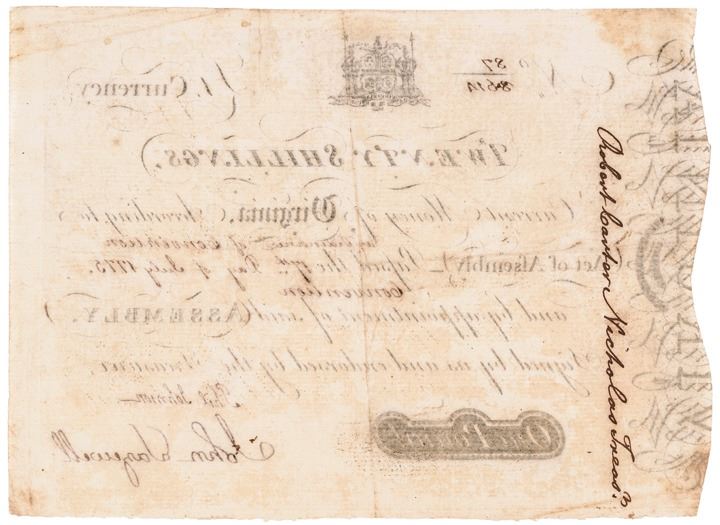 No. 87
8614
£1, Currency
TWENTY SHILLINGS,
Current Money of Virginia, According to
Ordinance of Convention
Act of Assembly Passed the 17th Day of July 1775.
Convention
and by appointment of said (ASSEMBLY.)
Signed by us and endorsed by the Treasurer,
Phil Johnson
John Tazewell
One Pound
Robert Carter Nicholas Treasr.